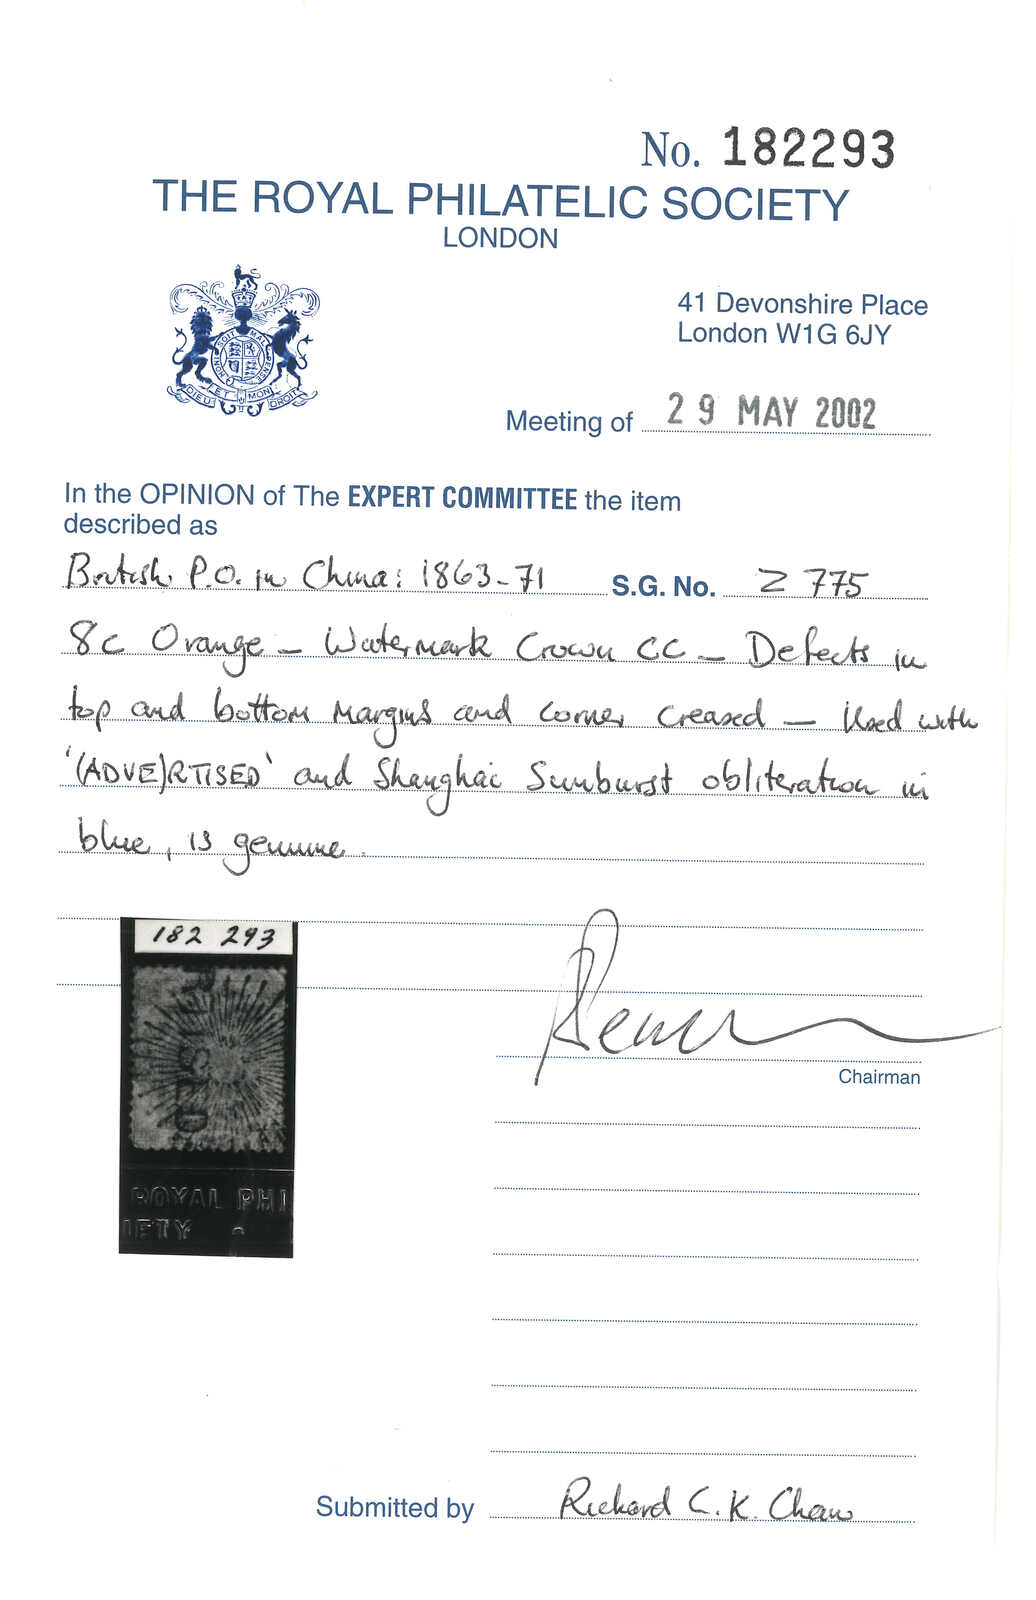 No. 182293
THE ROYAL PHILATELIC SOCIETY
LONDON
41 Devonshire Place
London W1G 6JY
HONI SOIT MAL PENSE
DIEU ET MON DROIT
Meeting of 29 MAY 2002
In the OPINION of The EXPERT COMMITTEE the item
described as
British P.O. in China: 1863-71 S.G. No. Z 775
8c Orange - Watermark Crown CC - Defects in
top and bottom margins and corner creased - Used with
'(ADVE)RTISED' and Shanghai Sunburst obliteration in
blue, is genuine.
182 293
ROYAL PHI
IETY
Chairman
Submitted by Richard C.K. Chan